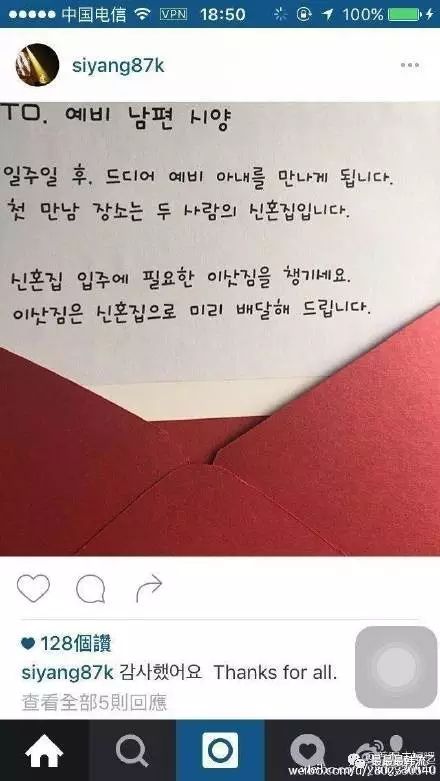 中国电信 VPN 18:50 100%
siyang87k
TO. 예비 남편 시양
일주일 후, 드디어 예비 아내를 만나게 됩니다.
첫 만남 장소는 두 사람의 신혼집입니다.
신혼집 입주에 필요한 이삿짐을 챙기세요.
이삿짐은 신혼집으로 미리 배달해 드립니다.
128個讚
siyang87k 감사했어요 Thanks for all.
查看全部5則回應
最最最韩流